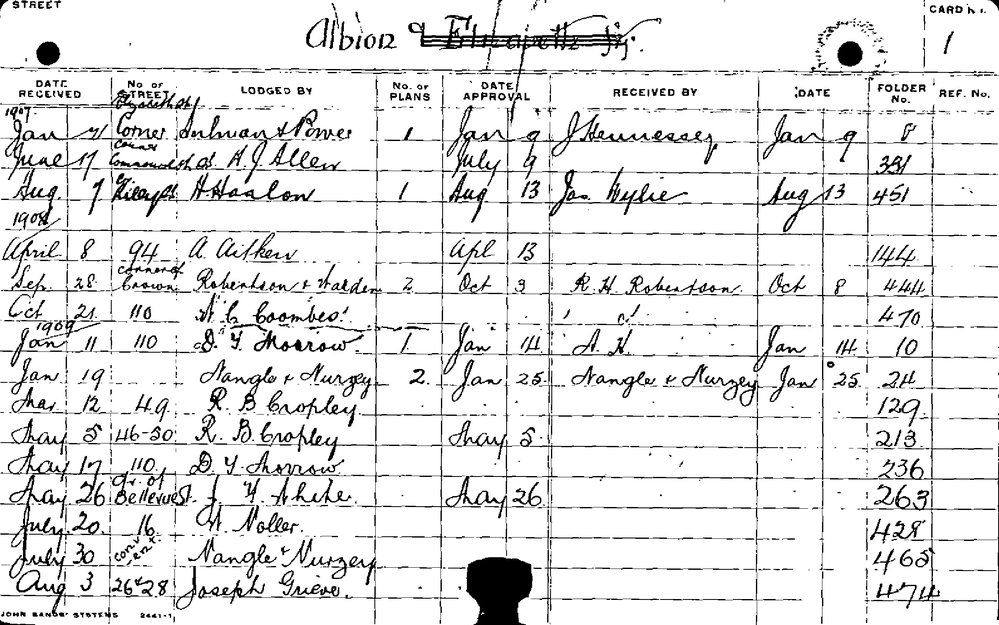 STREET
CARD No.
Albion & Elizabeth
1
DATE RECEIVED No. OF STREET LODGED BY No. OF PLANS DATE APPROVAL RECEIVED BY DATE FOLDER No. REF. No.
1907 Elizabeth St
Jan 7 Corner & Power 1 Jan 9 J Hennessey Jan 9 8
June 17 corner Commonwealth St A. J. Allen July 9 331
Aug. 7 Riley St H Hanlon 1 Aug 13 Jas Wylie Aug 13 451
1908
April 8 94 A. Aitken Apl 13 144
Sep. 28 corner of Crown Robertson & Harden 2 Oct 3 R. H. Robertson Oct 8 444
Oct 21 110 Coombes 470
1909
Jan 11 110 D. Y. Morrow 1 Jan 14 A. H. Jan 14 10
Jan 19 Nangle & Nurzey 2 Jan 25 Nangle & Nurzey Jan 25 24
Mar 12 49 R. B Cropley 129
May 5 46-50 R. B. Cropley May 5 213
May 17 110 D. Y. Morrow 236
May 26 Cr. of Bellevue St J. H. White May 26 263
July 20 16 Noller 428
July 30 Nangle & Nurzey 465
Aug 3 26 & 28 Joseph Grieve. 474
JOHN SANDS' SYSTEMS 2441-1